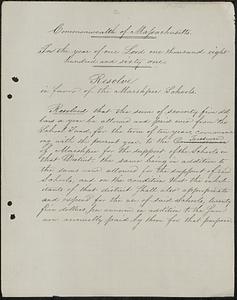 Commonwealth of Massachusetts.
In the year of our Lord one thousand eight
hundred and sixty one.
Resolve
in favor of the Marshpee Schools.
Resolved that the sum of seventy five dol
lars a year be allowed and paid out from the
School Fund, for the term of ten years, commenc
ing with the present year, to the Treasurer
of Marshpee for the support of the Schools in
that District, the same being in addition to
the sums now allowed for the support of said
Schools; and on the condition that the inhabi
tants of that District shall also appropriate
and expend for the use of said Schools, twenty
five dollars per annum in addition to the sum
now annually paid by them for that purpose